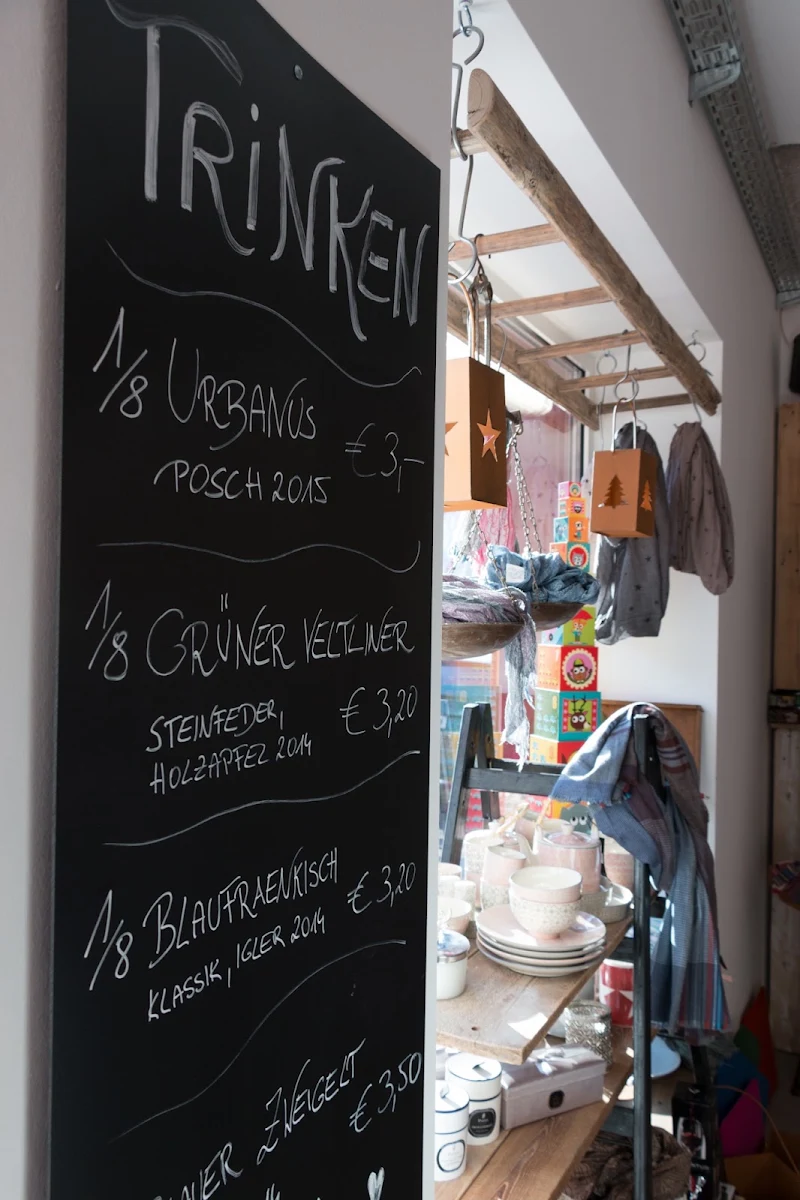 TRINKEN
1/8 URBANUS
POSCH 2015 €3,-
1/8 GRÜNER VELTLINER
STEINFEDER, € 3,20
HOLZAPFEL 2014
1/8 BLAUFRAENKISCH € 3,20
KLASSIK, IGLER 2014
ZWEIGELT € 3,50